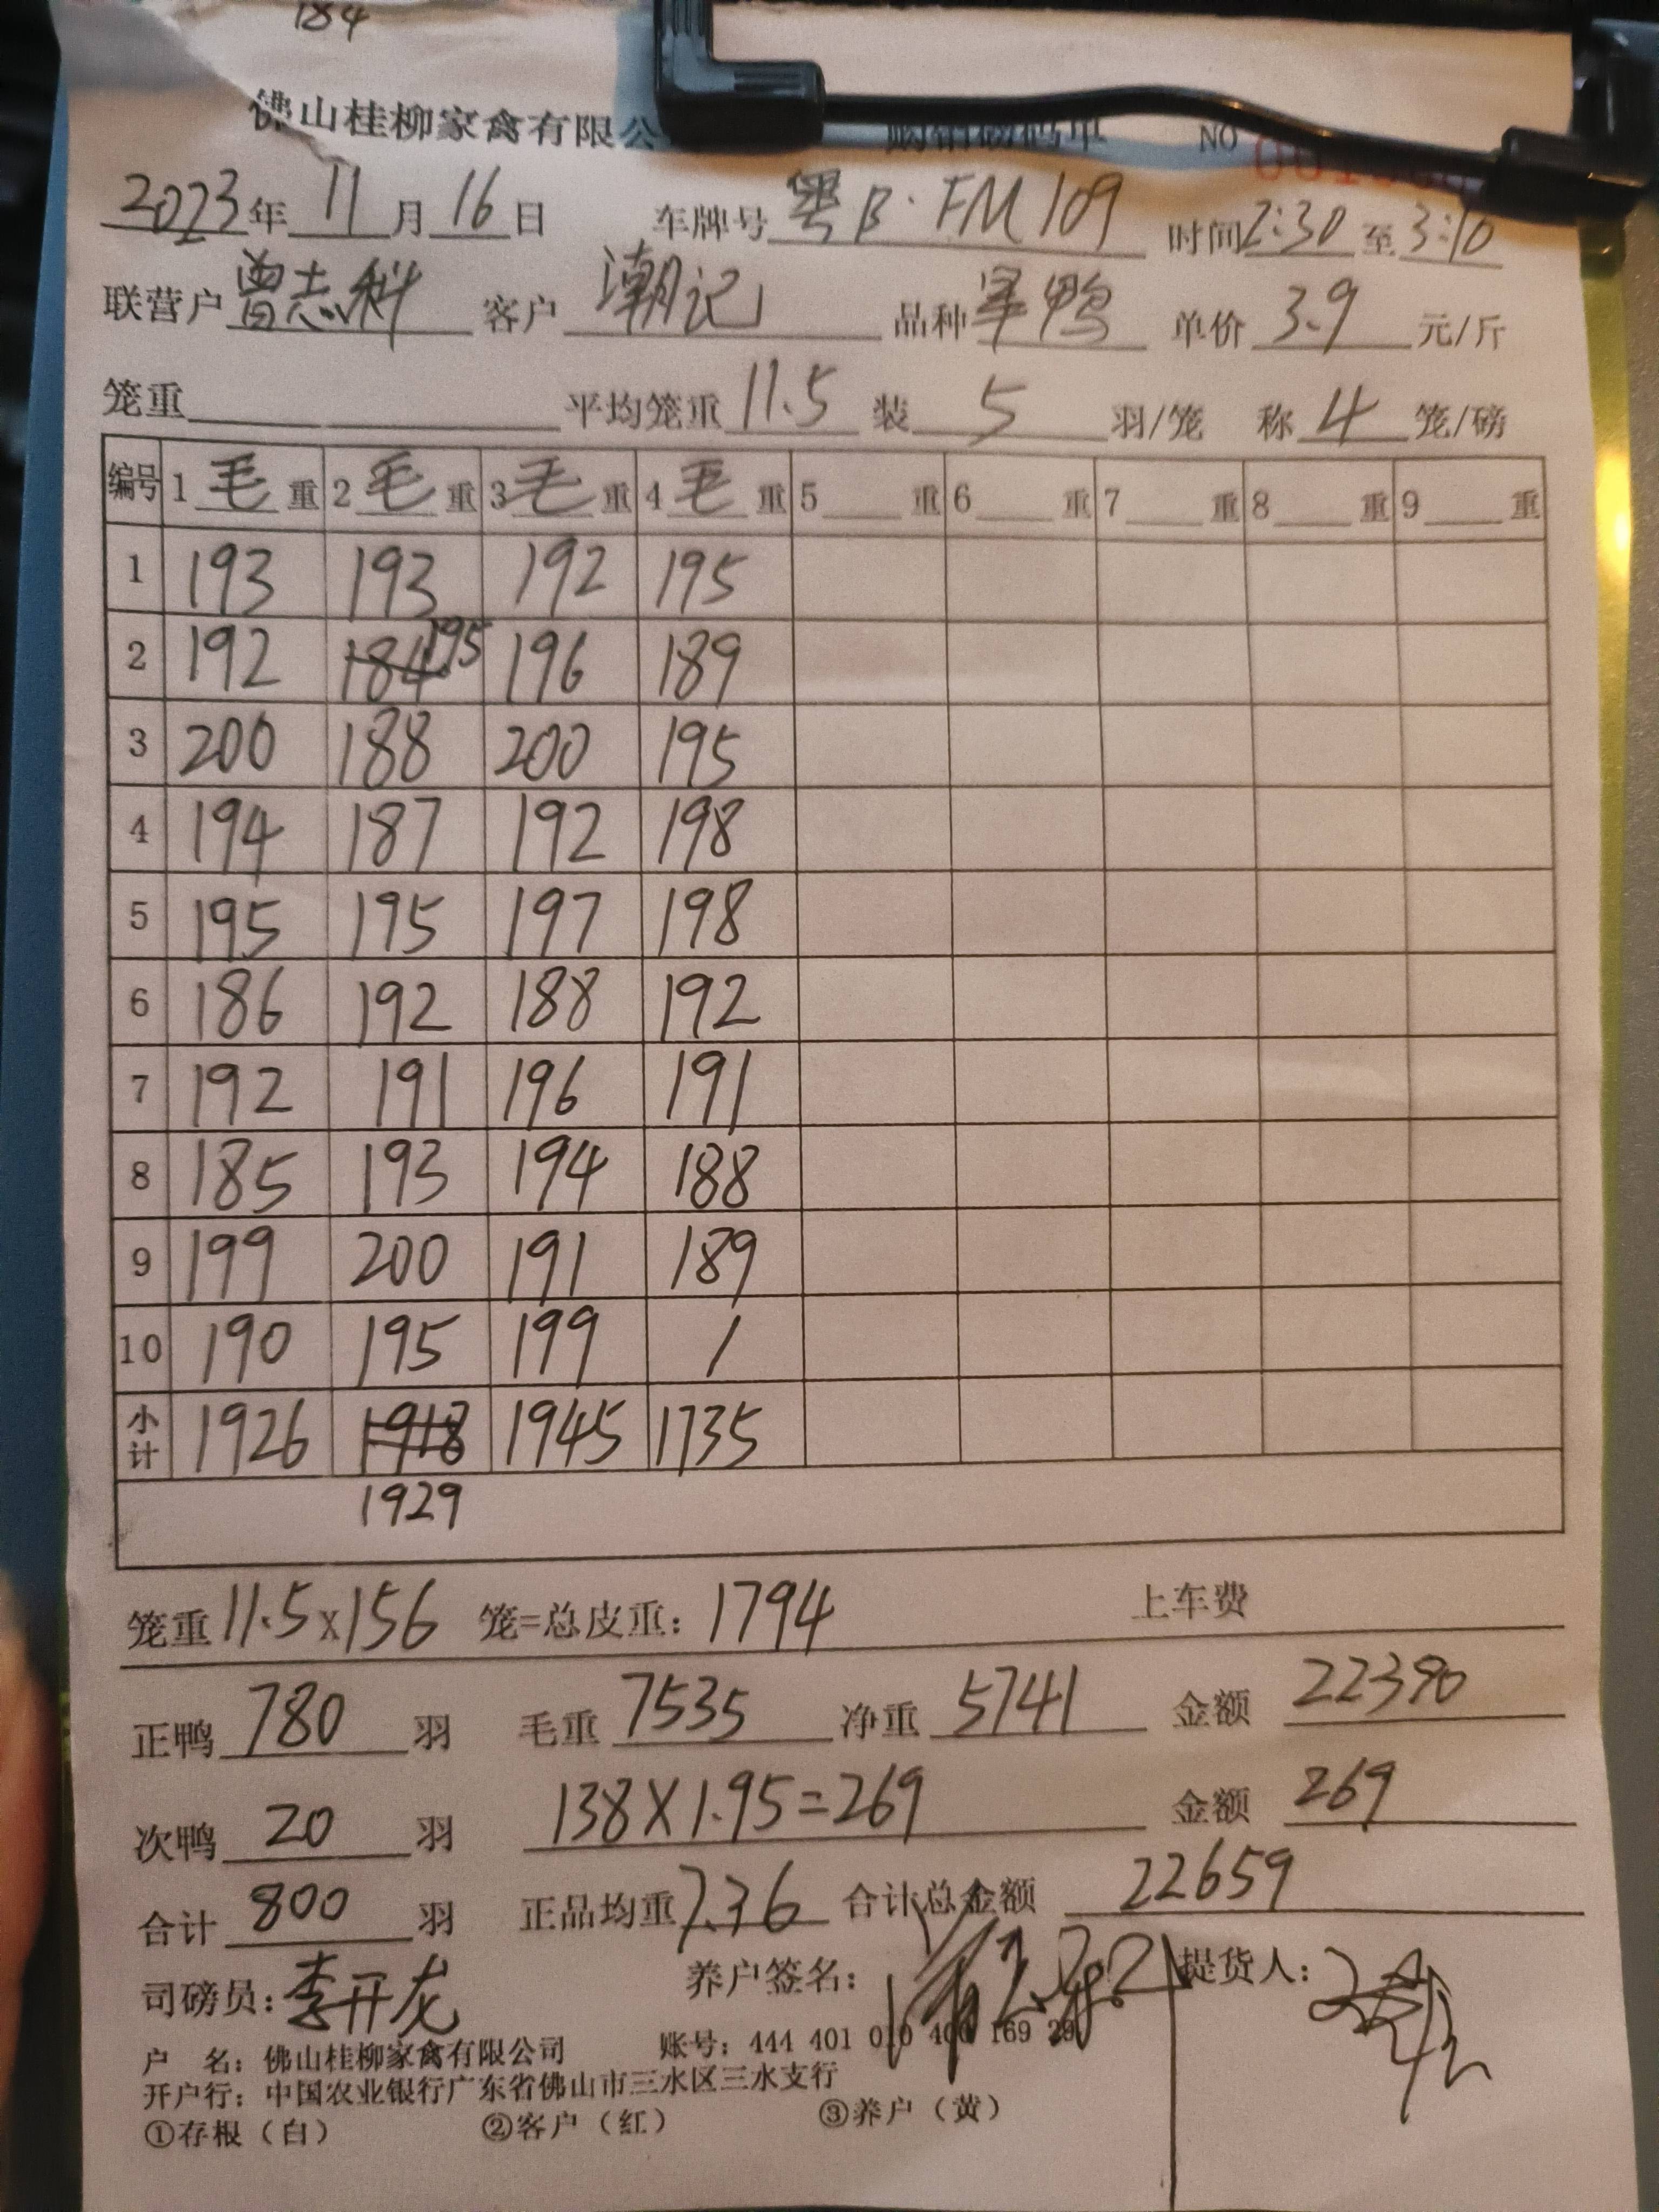 184
佛山桂柳家禽有限公 NO
2023年11月16日 车牌号 粤B·FM109 时间2:30至3:10
联营户 曾志科 客户 潮记 品种 单价 3.9 元/斤
笼重 平均笼重 11.5 装 5 羽/笼 称 4 笼/磅
编号 1 毛 重 2 毛 重 3 毛 重 4 毛 重 5 重 6 重 7 重 8 重 9 重
1 193 193 192 195
2 192 184 195 196 189
3 200 188 200 195
4 194 187 192 198
5 195 195 197 198
6 186 192 188 192
7 192 191 196 191
8 185 193 194 188
9 199 200 191 189
10 190 195 199 /
小计 1926 1918 1945 1735
1929
笼重 11.5×156 笼=总皮重: 1794 上车费
正鸭 780 羽 毛重 7535 净重 5741 金额 22390
次鸭 20 羽 138×1.95=269 金额 269
合计 800 羽 正品均重 7.36 合计总金额 22659
司磅员: 李开龙 养户签名: 提货人:
户 名: 佛山桂柳家禽有限公司 账号: 444 401 010 400 169 29
开户行: 中国农业银行广东省佛山市三水区三水支行
①存根（白） ②客户（红） ③养户（黄）